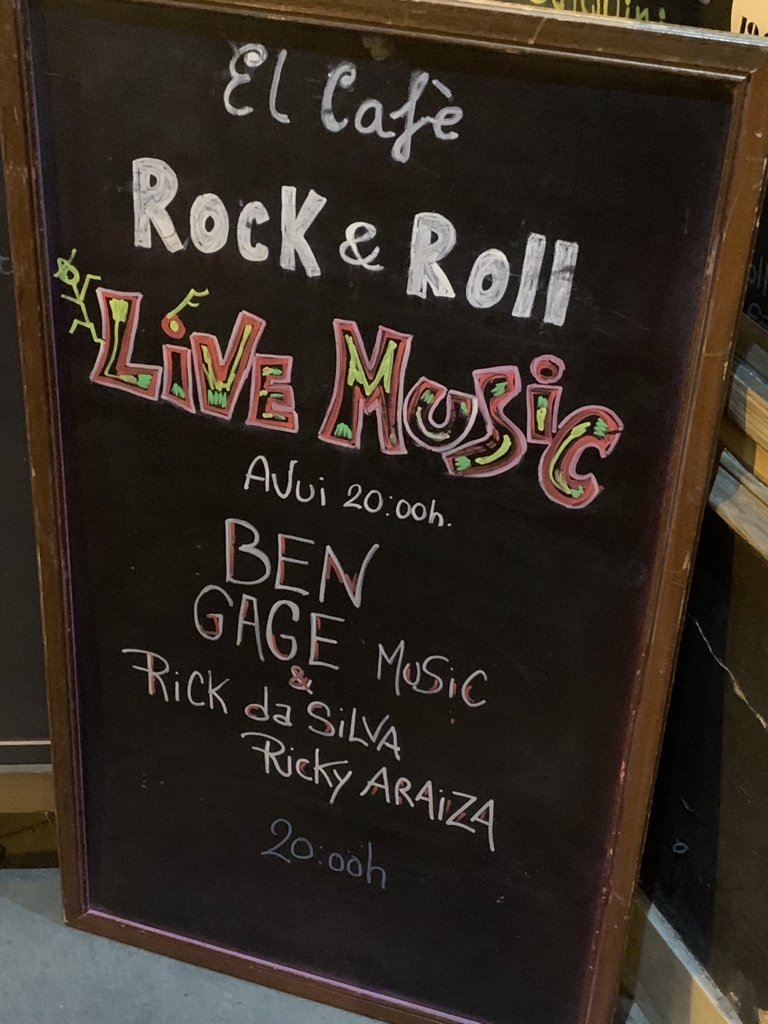 El Cafè
Rock & Roll
Live Music
AVui 20:00h.
BEN
GAGE MUSiC
&
RiCK da SiLVA
Ricky ARAiZA
20:00h